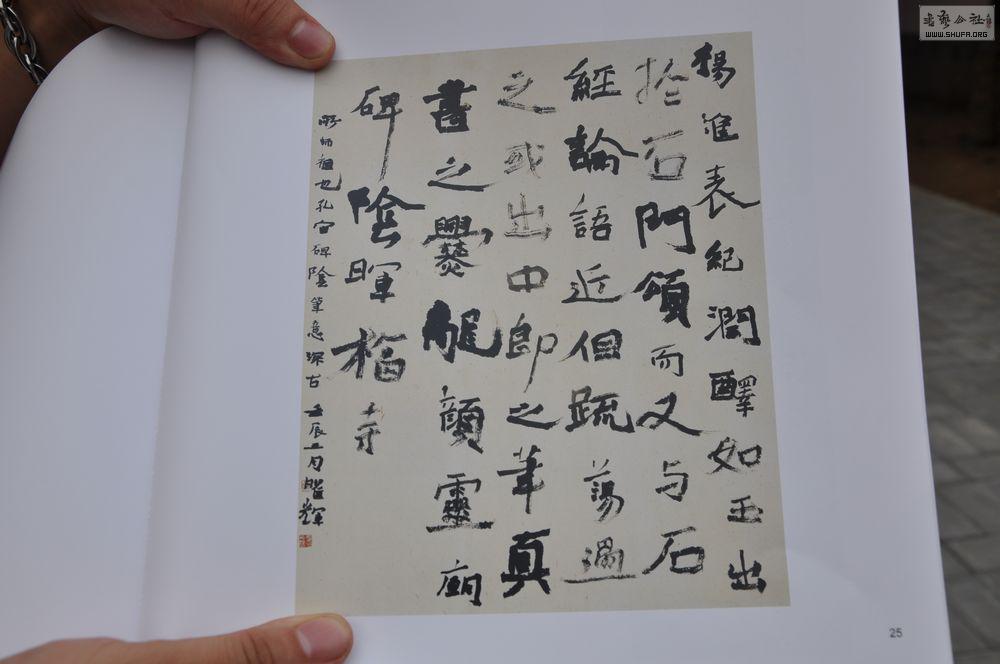 楊淮表紀潤醳如玉出
於石門頌而又与石
經論語近但疏蕩過
之或出中郎之筆真
書之爨龍顔靈廟
碑陰暉福寺
所師祖也孔宙碑陰筆意深古 壬辰二月 輝
25
書藝公社
WWW.SHUFA.ORG